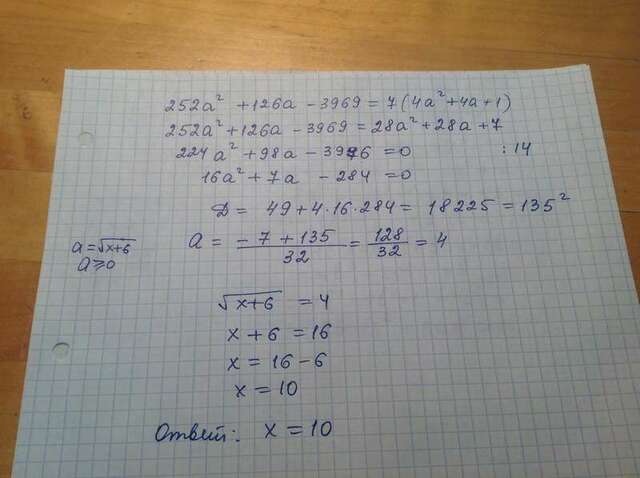 252a² + 126a - 3969 = 7(4a² + 4a + 1)
252a² + 126a - 3969 = 28a² + 28a + 7
224a² + 98a - 3976 = 0 :14
16a² + 7a - 284 = 0
Д = 49 + 4·16·284 = 18225 = 135²
a = √(x+6)
a ≥ 0
a = (-7 + 135)/32 = 128/32 = 4
√(x+6) = 4
x + 6 = 16
x = 16 - 6
x = 10
Ответ: x = 10